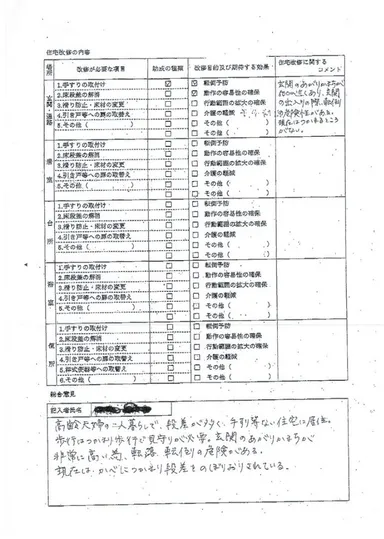 住宅改修の内容
場所 改修が必要な項目 助成の種類 改修目的及び期待する効果 住宅改修に関するコメント
玄関・通路
1.手すりの取付け ☑ ☑ 転倒予防
2.床段差の解消 □ ☑ 動作の容易性の確保
3.滑り防止・床材の変更 □ □ 行動範囲の拡大の確保
4.引き戸等への扉の取替え □ □ 介護の軽減
5.その他( ) □ □ その他( )
玄関のあがりかまちが
高く
の出入りの際、転倒
の危険性がある。
現在はつかまるところ
がない。
1.手すりの取付け □ □ 転倒予防
2.床段差の解消 □ □ 動作の容易性の確保
3.滑り防止・床材の変更 □ □ 行動範囲の拡大の確保
4.引き戸等への扉の取替え □ □ 介護の軽減
5.その他( ) □ □ その他( )
□ その他( )
台所
1.手すりの取付け □ □ 転倒予防
2.床段差の解消 □ □ 動作の容易性の確保
3.滑り防止・床材の変更 □ □ 行動範囲の拡大の確保
4.引き戸等への扉の取替え □ □ 介護の軽減
5.その他( ) □ □ その他( )
浴室
1.手すりの取付け □ □ 転倒予防
2.床段差の解消 □ □ 動作の容易性の確保
3.滑り防止・床材の変更 □ □ 行動範囲の拡大の確保
4.引き戸等への扉の取替え □ □ 介護の軽減
5.その他( ) □ □ その他( )
□ その他( )
便所
1.手すりの取付け □ □ 転倒予防
2.床段差の解消 □ □ 動作の容易性の確保
3.滑り防止・床材の変更 □ □ 行動範囲の拡大の確保
4.引き戸等への扉の取替え □ □ 介護の軽減
5.和式便器等への取替え □ □ その他( )
6.その他( ) □ □ その他( )
総合意見
記入者氏名
高齢夫婦の二人暮らしで、段差が多く、手すり等ない住宅に居住。
歩行はつかまり歩行で見守りが必要。玄関のあがりかまちが
非常に高い為、転落、転倒の危険がある。
現在は、かべにつかまり段差をのぼりおりされている。